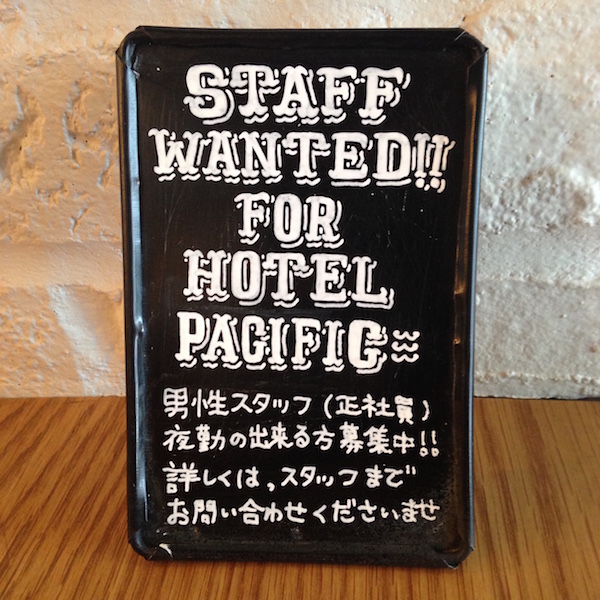 STAFF
WANTED!!
FOR
HOTEL
PACIFIC
男性スタッフ(正社員)
夜勤の出来る方募集中!!
詳しくは,スタッフまで
お問い合わせくださいませ